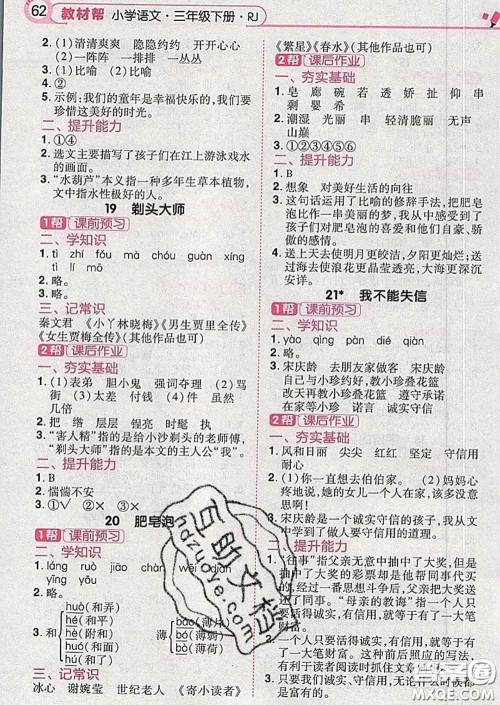 62 教材帮 小学语文·三年级下册·RJ
2. (1)清清爽爽 隐隐约约 开开心心
(2)一阵阵 一排排 一丛丛
3. (1)比喻 (2)比喻
4. ②
5. 示例:我们的童年是幸福快乐的,我们要珍惜
这美好的时光。
二、提升能力
1. ①④
2. 选文主要描写了孩子们在江上游泳戏水
的画面。
3. “水葫芦”本义指一种多年生草本植物,
文中指水性极好的人。
19 剃头大师
1帮 课前预习
二、学知识
1. tì zhǐ fǒu mà chóu guàn xíng
tì lǐ mō
2. 略。
三、记常识
秦文君 《小丫林晓梅》《男生贾里全传》
《女生贾梅全传》(其他作品也可)
2帮 课后作业
一、夯实基础
1. (1)表弟 胆小鬼 强词夺理 (2)耳
朵 (3)太差 付钱 (4)件 虽然
几总
2. 把 绺 层层 锃亮 时髦 执
3. “害人精”指的是给小沙剃头的老师傅,
“剃头大师”指的是本文的主人公“我”。
二、提升能力
1. B
2. 惴惴不安
3. ①√ ②× ③×
20 肥皂泡
1帮 课前预习
二、学知识
1. láng ruò jiāo chàn wěi qiàn
yīng yǎng
2. 略。
3. 和 huò(和弄) hé(和平) hè(附和) huó(和面)
薄 báo(薄片) bó
三、记常识
冰心 谢婉莹 世纪老人 《寄小读者》
《繁星》《春水》(其他作品也可)
2帮 课后作业
一、夯实基础
1. 皂 廊 碗 若 透 娇 扯 仰 串
剩 婴 希
2. 潮湿 光丽 串 轻清脆丽 无声
山巅
3. ①②③④⑤⑥
二、提升能力
1. B
2. 想象 对美好生活的向往
3. 这句话运用了比喻的修辞手法,把肥皂
泡比作一串美丽的梦,我从中体会到作
者对肥皂泡的喜爱以及对美好生活的
向往。
4. 送上天去使明月更皎洁,夕阳更灿烂;送
去海里使浪花更晶莹透亮,大海更壮美。
21* 我不能失信
1帮 课前预习
一、学知识
1. yào qìng pàn dié qiàn
2. 略。
3. 宋庆龄 去朋友家做客 小珍 宋庆龄
自己与小珍约好,教小珍叠花篮 改天
再教小珍叠花篮 遵守承诺
在家等小珍 诺言 诚实守信
2帮 课后作业
一、夯实基础
1. 风和日丽 尖尖 红红 坚定 守信用
耐心
2. (1)你一直想去看伯伯家。 (2)妈妈心
疼地说,她的女儿一个人在家,我们不
放心。
3. 宋庆龄是一个诚实守信的孩子,我从中
学到了做人要守信用的道理。
二、提升能力
1. “往事”指父亲无意中抽中了大奖,但是
抽中了大奖的彩票却是他帮同事代买
的,经过一番思想斗争后,父亲把大奖还
给了同事。“母亲的教诲”指一个人只
要活得诚实,有信用,就等于有了一大笔
财富。
2. 一个人只要活得诚实,有信用,就等于有
了一大笔财富。这样前后照应的写法,
有利于读者阅读时抓住文章的中心。
3. 一个人只要诚实守信,即使物质上贫
是富有的。
互助文档
hdzuoye.com
答案圈
MXQE.COM